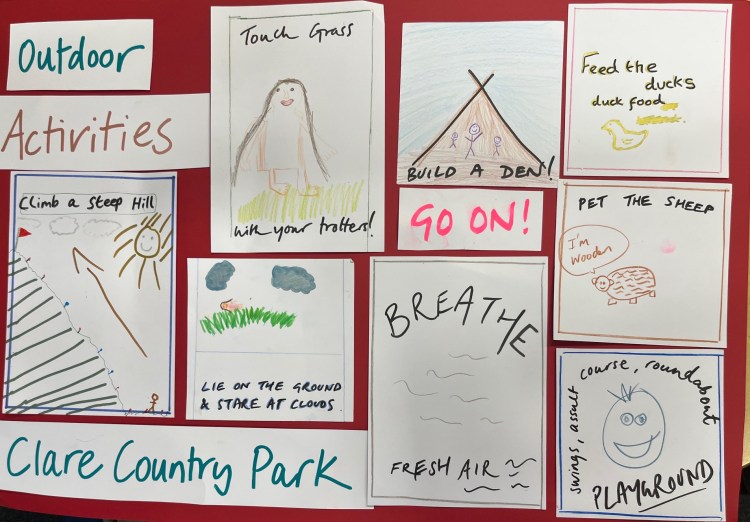 Outdoor
Activities
Climb a Steep Hill
Touch Grass
with your trotters!
LIE ON THE GROUND
& STARE AT CLOUDS.
BUILD A DEN!
GO ON!
BREATHE
FRESH AIR
Feed the
ducks
duck food
PET THE SHEEP
I'm
Wooden
swings, assult course, roundabout
PLAYGROUND
Clare Country Park